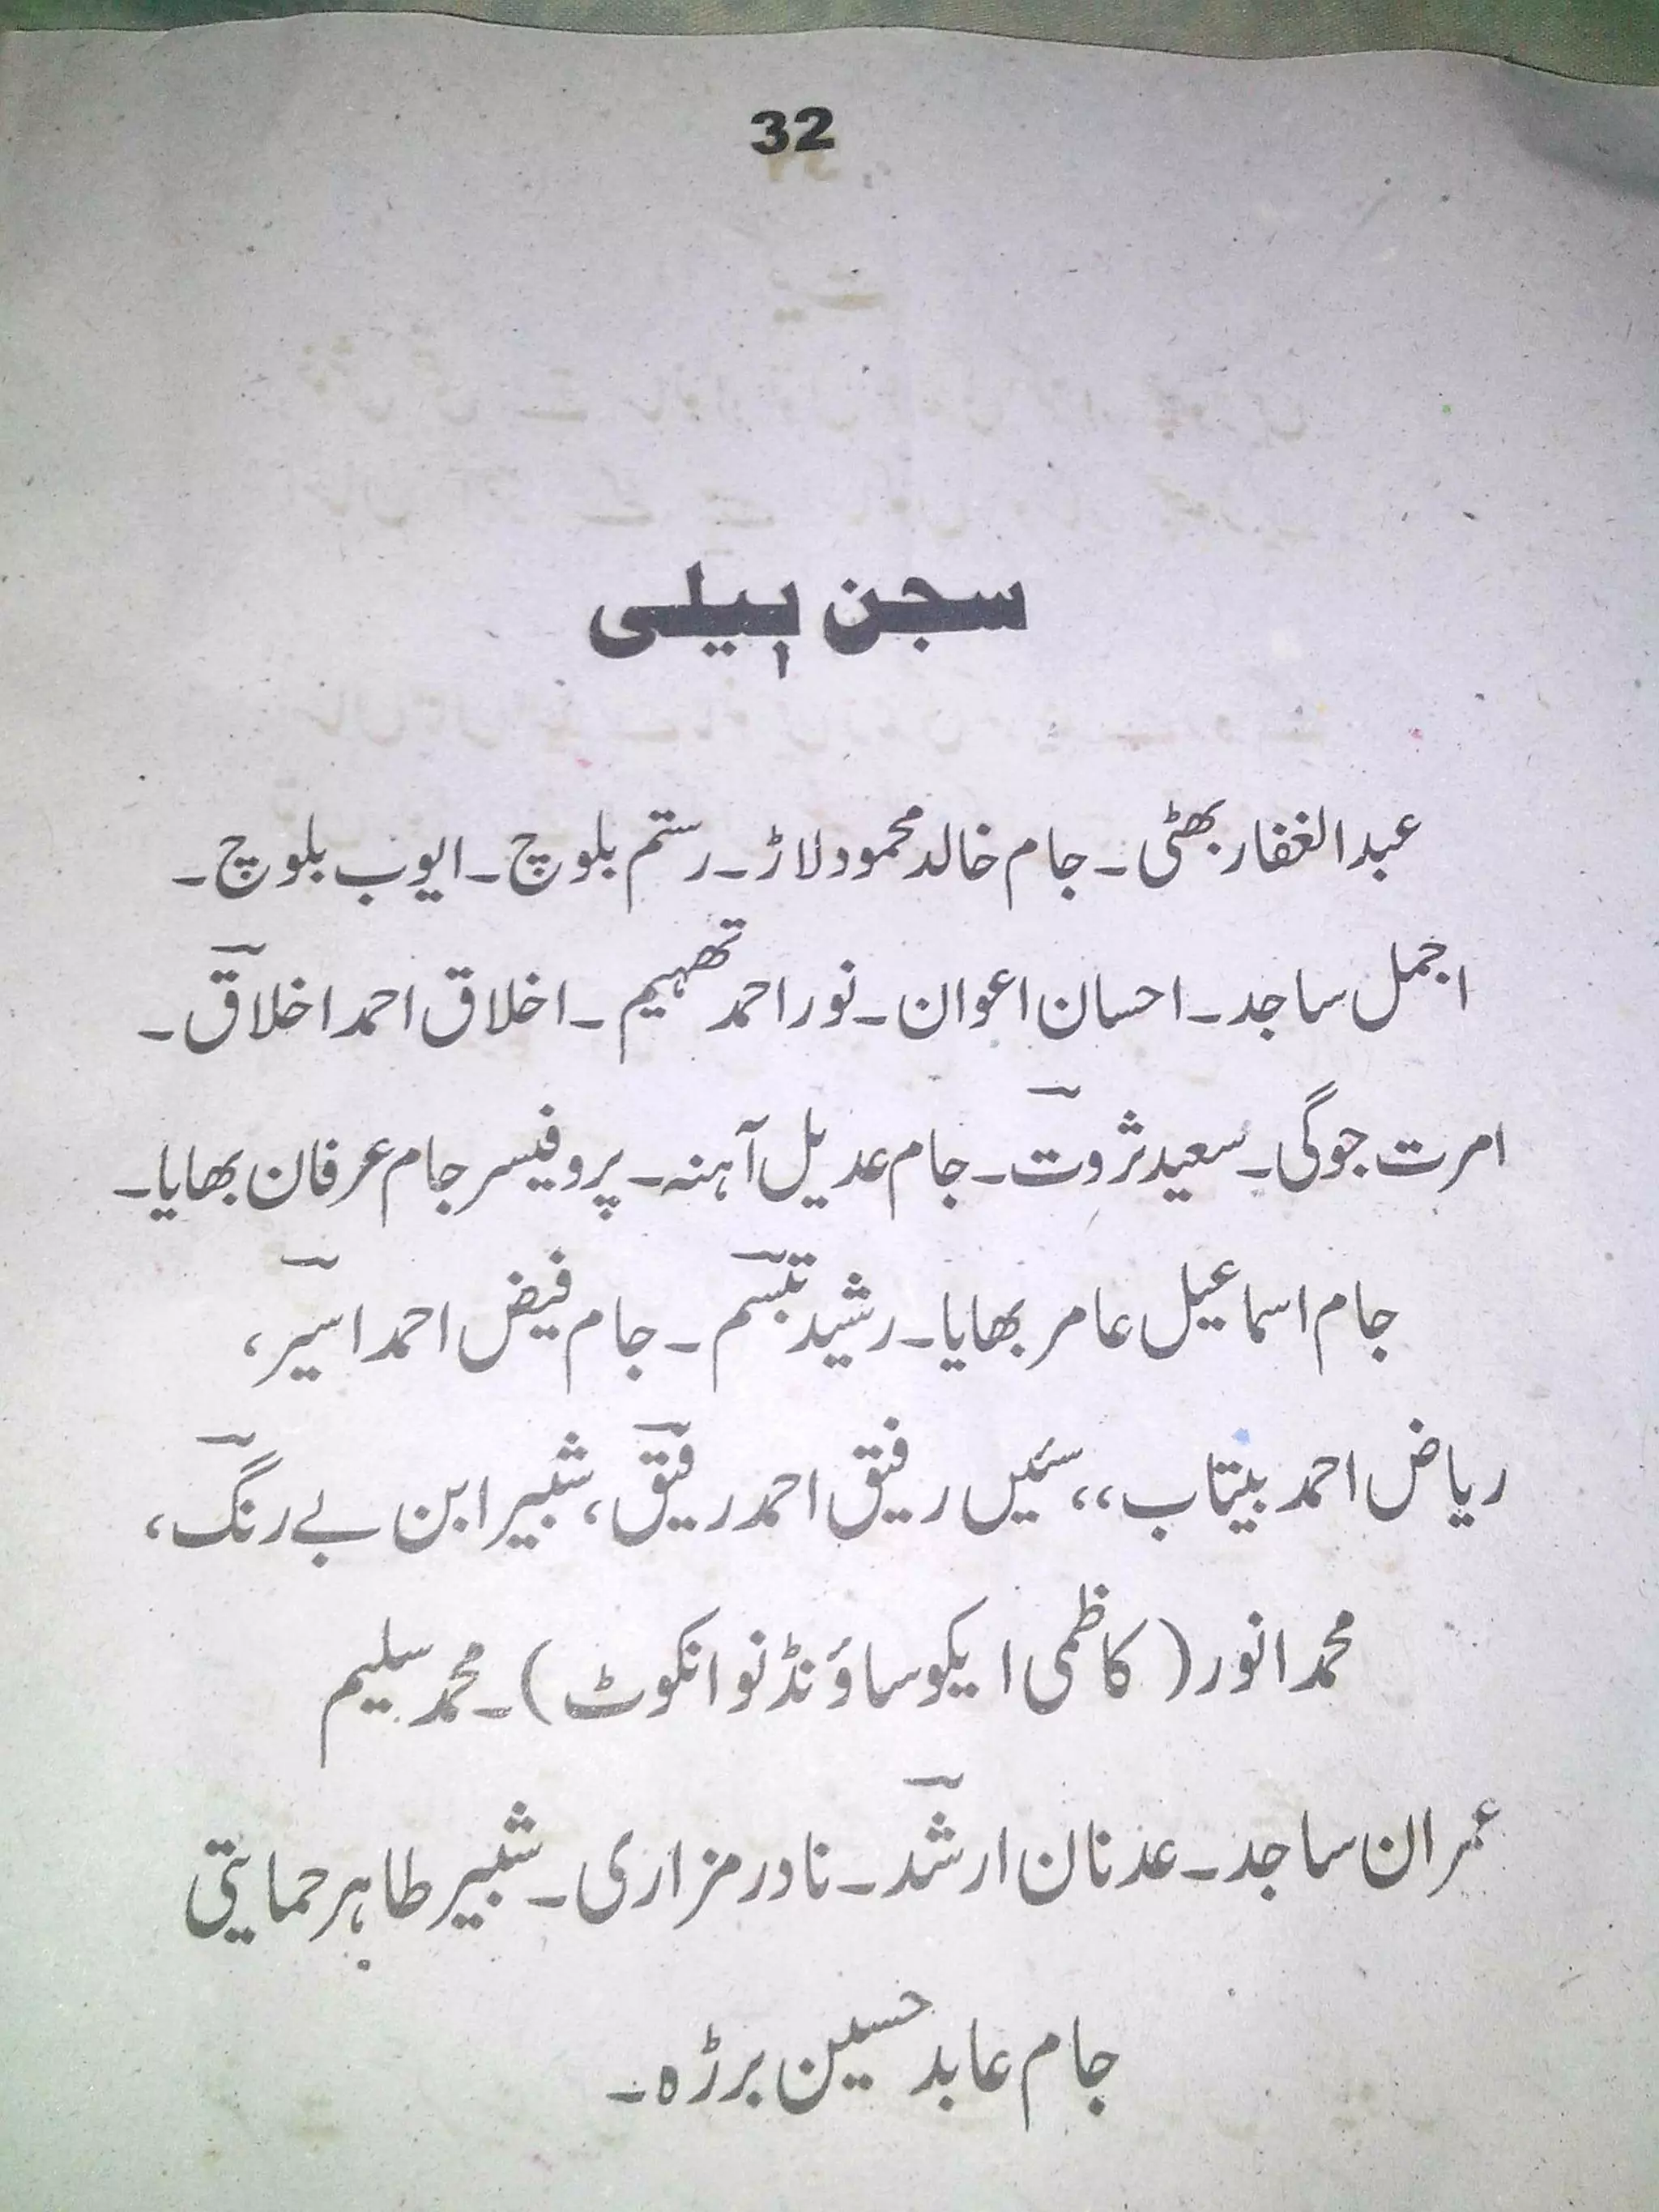 32
سجن ٻیلی
عبدالغفار بھٹی۔ جام خالد محمود لاڑ۔ رستم بلوچ۔ ایوب بلوچ۔
اجمل ساجد۔ احسان اعوان۔ نور احمد تھہیم۔ اخلاق احمد اخلاقؔ۔
امرت جوگی۔ سعید ثروتؔ۔ جام عدیل آہنہ۔ پروفیسر جام عرفان بھایا۔
جام اسماعیل عامر بھایا۔ رشید تبسمؔ۔ جام فیض احمد اسیرؔ،
ریاض احمد بیتاب،، سئیں رفیق احمد رفیقؔ، شبیر ابن بے رنگؔ،
محمد انور (کاظمی ایکو ساؤنڈ نوانکوٹ)۔ محمد سلیم
عمران ساجد۔ عدنان ارشدؔ۔ نادر مزاری۔ شبیر طاہر حمایتی
جام عابد حسین برڑہ۔